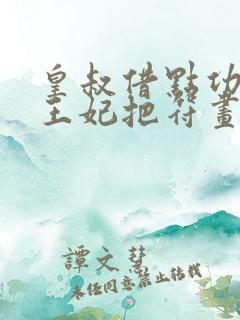 皇叔借點功
王妃把符畫
譚文慧
未經同意禁止轉載